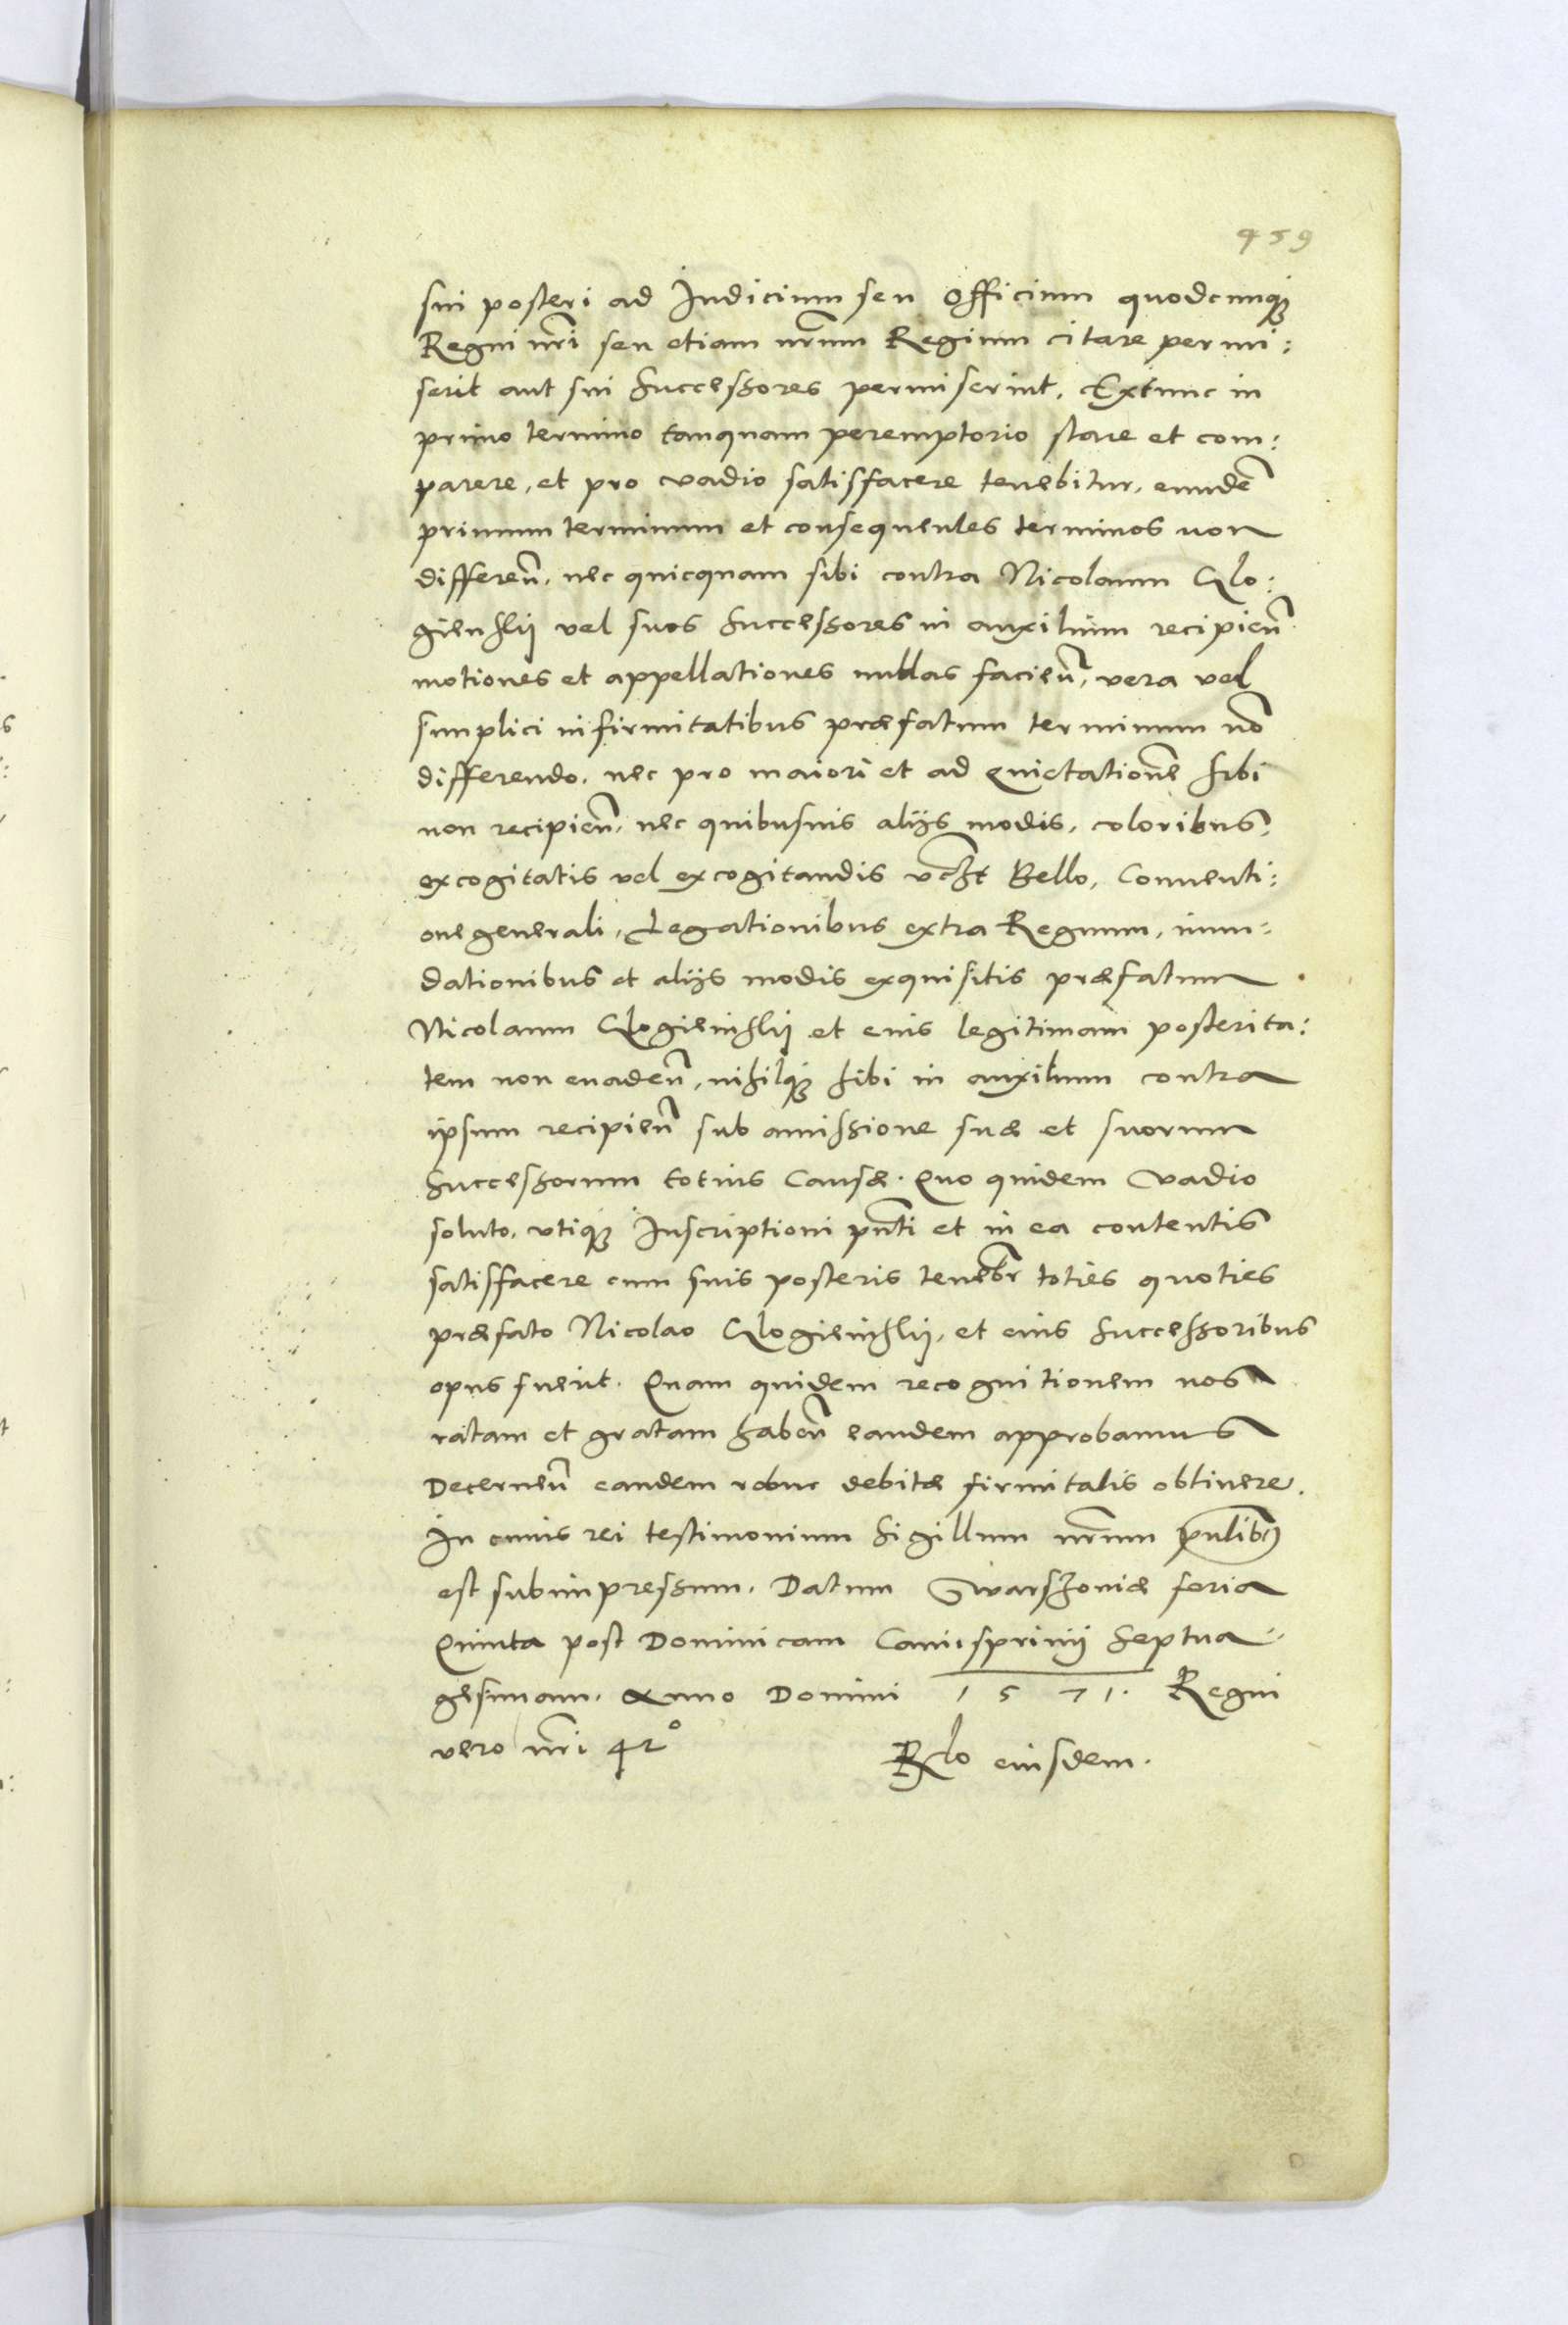 459
sui posteri ad Iudicium seu Officium quodcunq
Regni nri seu etiam nrum Regium citare permi:
serit aut sui Successores permiserint. Extunc in
primo termino tanquam peremptorio stare et com:
parere, et pro vadio satisfacere tenebitur, eunde
primum terminum et consequentes terminos non
differen. nec quicquam sibi contra Nicolaum Clo:
giensky vel suos Successores in auxilium recipien
motiones et appellationes nullas facien, vera vel
simplici infirmitatibus præfatum terminum no
differendo. nec pro maiori et ad Quietatione sibi
non recipien, nec quibusuis alijs modis, coloribus
excogitatis vel excogitandis Bello, Conuenti:
one generali, Legationibus extra Regnum, inun:
dationibus et alijs modis exquisitis præfatum
Nicolaum et eius legitimam posterita:
tem non euaden, nihilq sibi in auxilium contra
ipsum recipien sub amissione suæ et suorum
Successorum totius Causæ. Quo quidem vadio
soluto. vtiq Inscriptioni pnti et in ea contentis
satisfacere cum suis posteris tenebr toties quoties
præfato Nicolao et eius Successoribus
opus fuerit. Quam quidem recognitionem nos
ratam et gratam haben eandem approbamus
Decernen eandem robur debitæ firmitatis obtinere.
In cuius rei testimonium Sigillum nrum pntibus
est subimpressum. Datum Warszouiæ feria
Quinta post Dominicam Septua
gesimam. Anno Domini 1571. Regni
vero nri 42°
Rlo eiusdem.